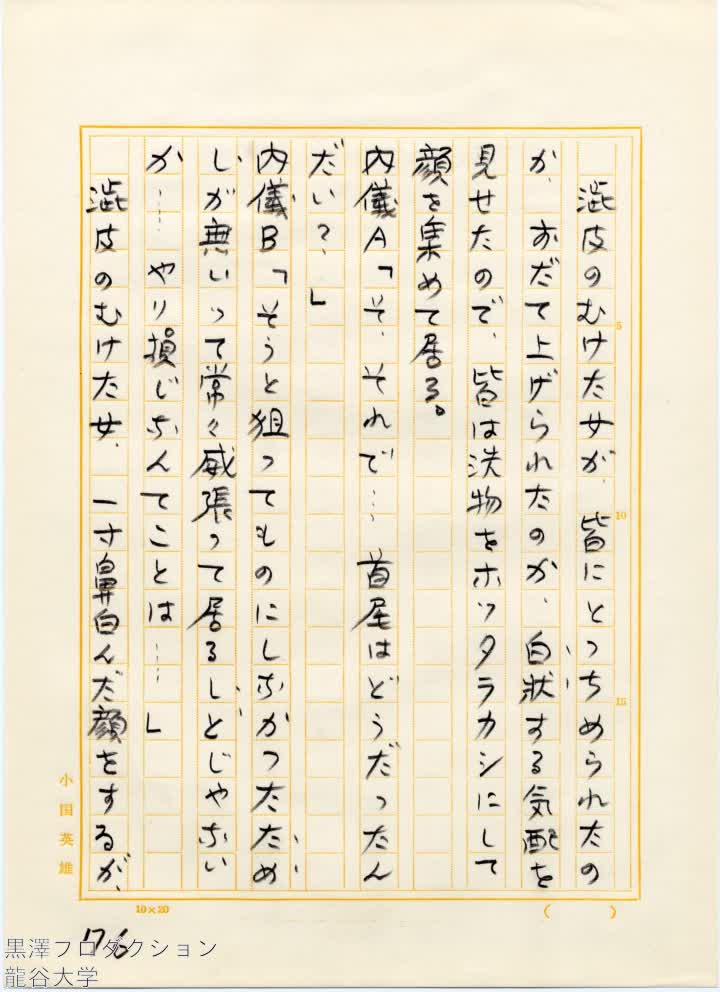 澁皮のむけた女が、皆にとっちめられたの
か、おだて上げられたのか、白状する気配を
見せたので、皆は洗物をホッタラカシにして
顔を集めて居る。
内儀A「そ、それで…首尾はどうだったん
だい?、」
内儀B「そうと狙ってものにしなかつたため
しが無いって常々威張って居るしどじゃない
か……やり損じなんてことは……」
澁皮のむけた女、一寸鼻白んだ顔をするが、
5
10
15
小国英雄
10×20
( )
176
黒澤プロダクション
龍谷大学